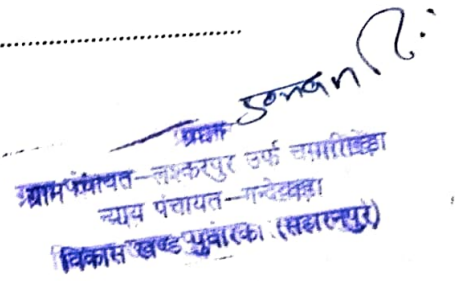 प्रधान
ग्राम पंचायत-लश्करपुर उर्फ
न्याय पंचायत-गन्देवड़ा
विकास खण्ड पुवांरका (सहारनपुर)